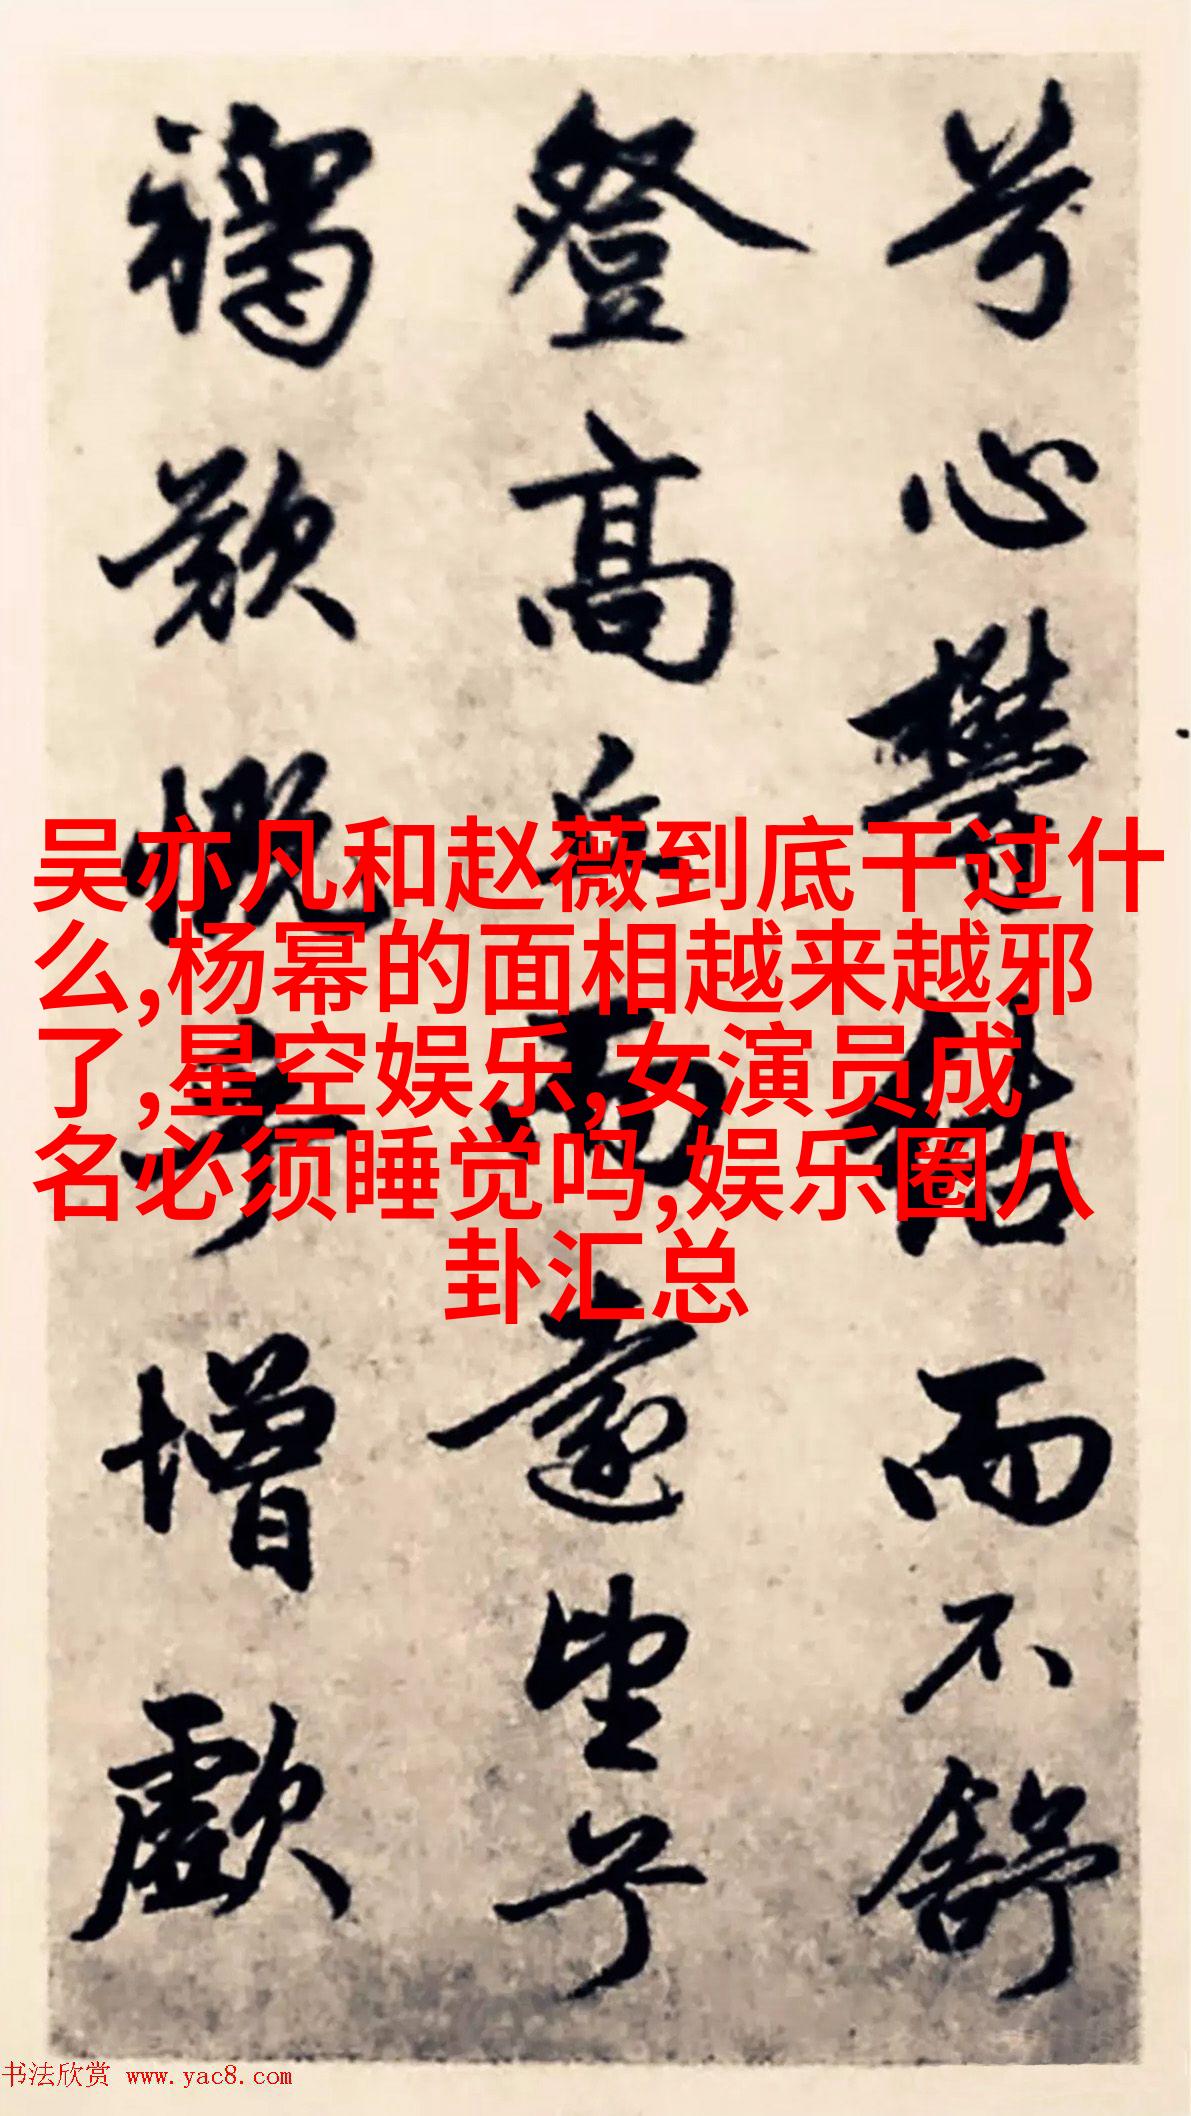 兮心鬱結而不舒
登高丘而遠望兮
欷慨兮增歔
吴亦凡和赵薇到底干过什
么,杨幂的面相越来越邪
了,星空娱乐,女演员成
名必须睡觉吗,娱乐圈八
卦汇总
书法欣赏 www.yac8.com